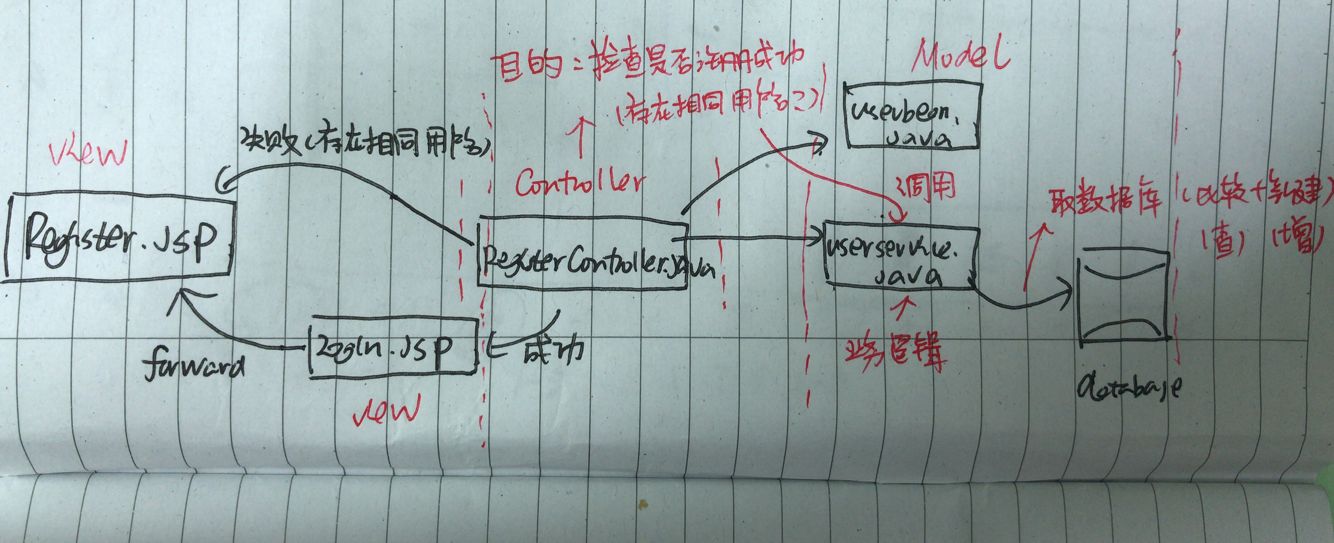 目的：检查是否注册成功
(存在相同用户名?)
Model
userbean.
java
view
失败(存在相同用户名)
Controller
调用
取数据库 (比较+新建)
(查) (增)
Register.jsp
RegisterController.java
userservice.
java
login.jsp
成功
forward
业务逻辑
view
database